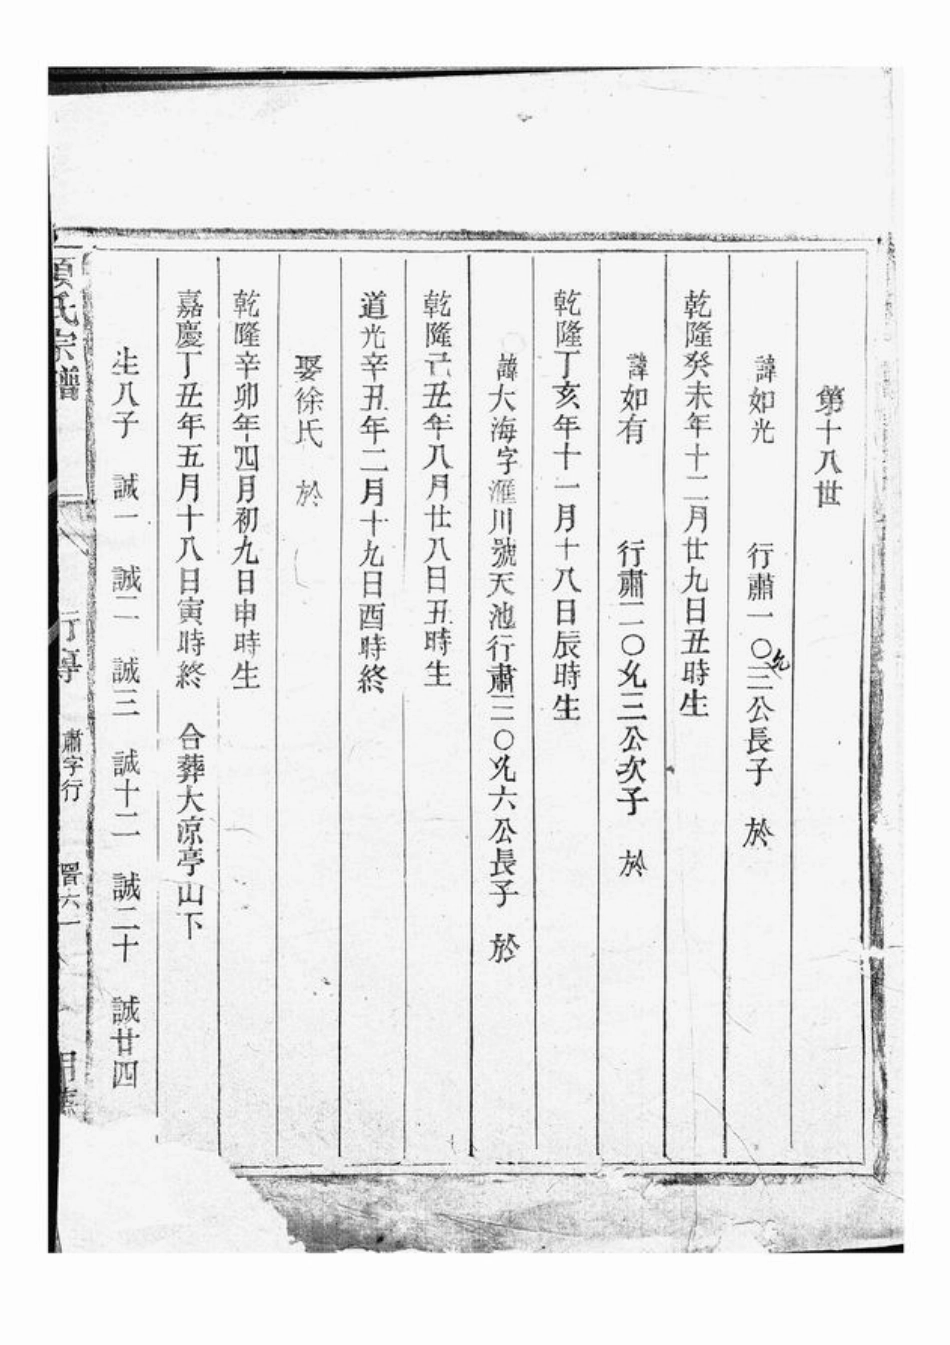 第十八世
諱如光 行肅一〇三公長子 於
允
乾隆癸未年十二月廿九日丑時生
諱如有 行肅二〇允三公次子 於
乾隆丁亥年十一月十八日辰時生
諱大海字滙川號天池行肅三〇允六公長子 於
乾隆己丑年八月廿八日丑時生
道光辛丑年二月十九日酉時終
娶徐氏 於
乾隆辛卯年四月初九日申時生
嘉慶丁丑年五月十八日寅時終 合葬大凉亭山下
生八子 誠一 誠二 誠三 誠十二 誠二十 誠廿四
項氏宗譜 行尊 肅字行 六一